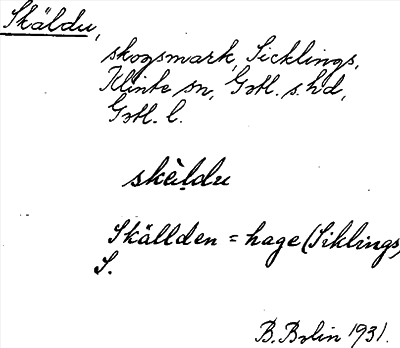 Skäldu,
skogsmark, Sicklings,
Klinte sn, Gotl. s. hd,
Gotl. l.
skèi̯ldu
Skällden = hage (Siklings)
S.
B. Bolin 1931.